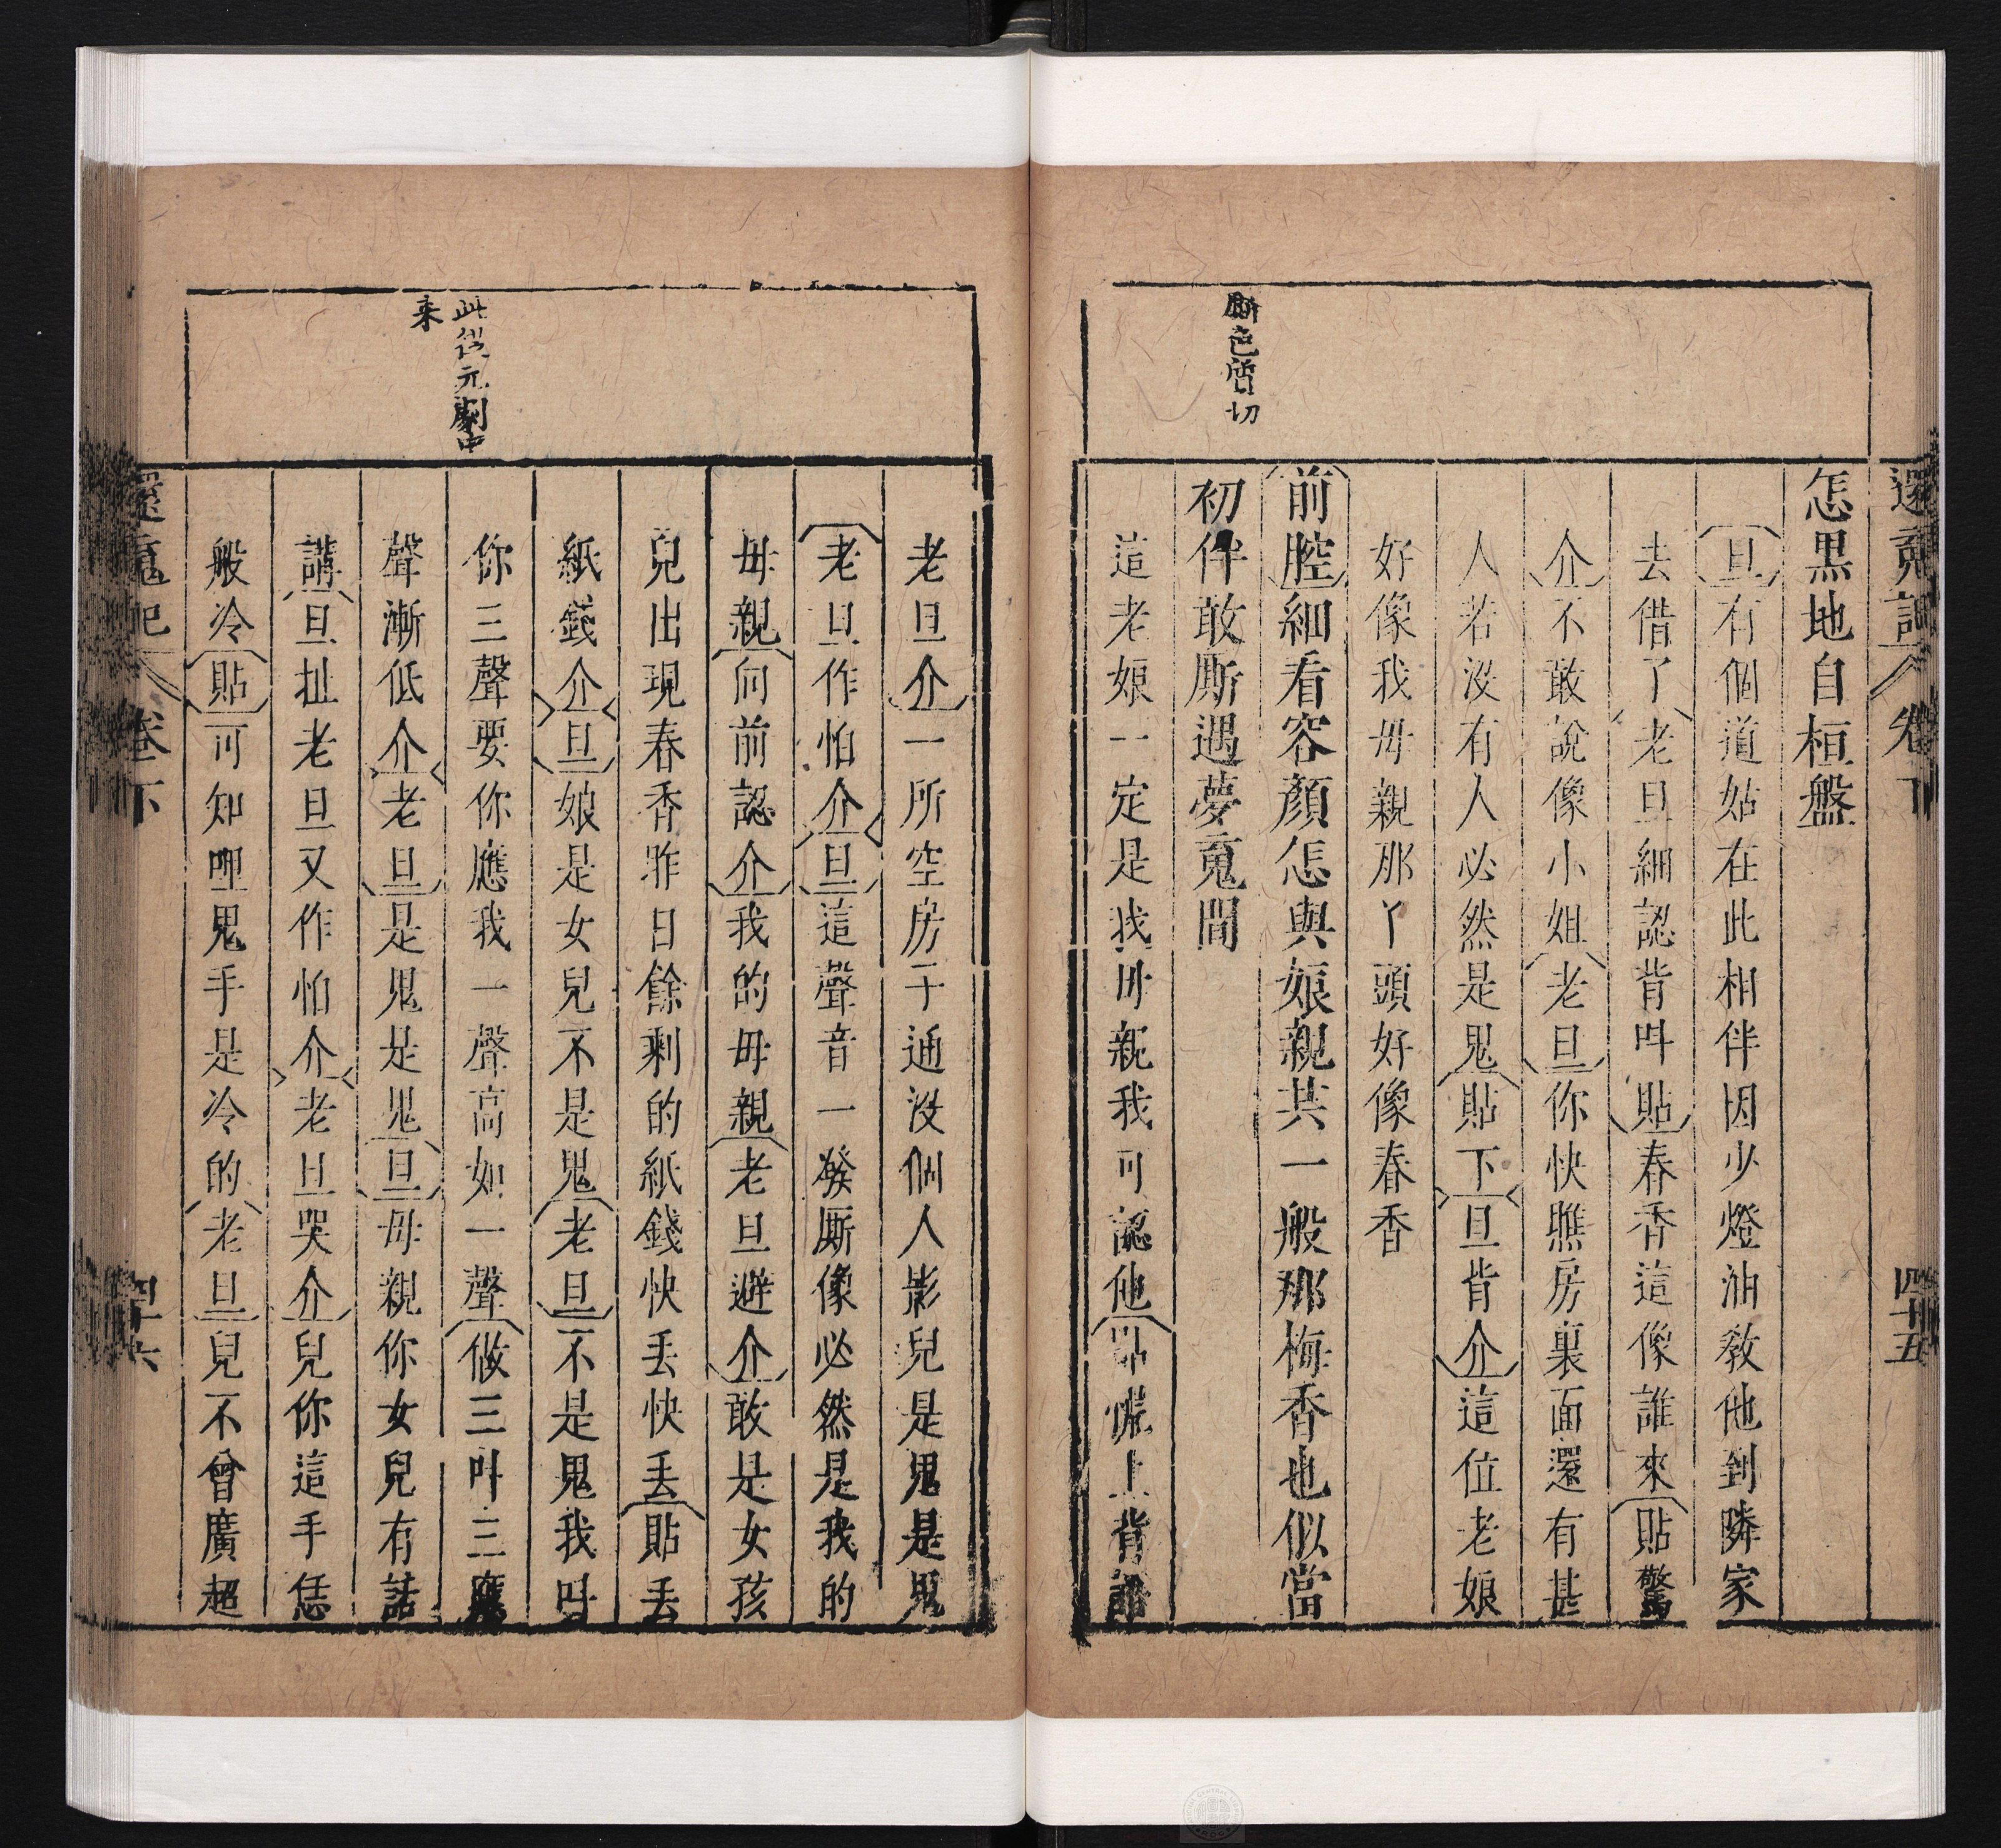 還䰟記
卷下
四十五
斯色質切
怎黑地自桓盤
旦有個道姑在此相伴因少燈油敎他到隣家
去借了老旦細認背叫貼春香這像誰來貼驚
介不敢說像小姐老旦你快瞧房裏面還有甚
人若沒有人必然是鬼貼下旦背介這位老娘
好像我母親那丫頭好像春香
前腔細看容顏怎與娘親共一般那梅香也似當
初伴敢厮遇夢䰟間
這老娘一定是我母親我可認他叫慌上背
老旦介一所空房子通沒個人影兒是鬼是鬼
老旦作怕介旦這聲音一發厮像必然是我的
母親向前認介我的母親老旦避介敢是女孩
兒出現春香昨日餘剩的紙錢快丟快丟貼丟
紙錢介旦娘是女兒不是鬼老旦不是鬼我叫
你三聲要你應我一聲高如一聲做三叫三應
聲漸低介老旦是鬼是鬼旦母親你女兒有話
講旦扯老旦又作怕介老旦哭介兒你這手恁
般冷貼可知哩鬼手是冷的老旦兒不曾廣超
此從元劇中
来
還䰟記
卷下
四十六